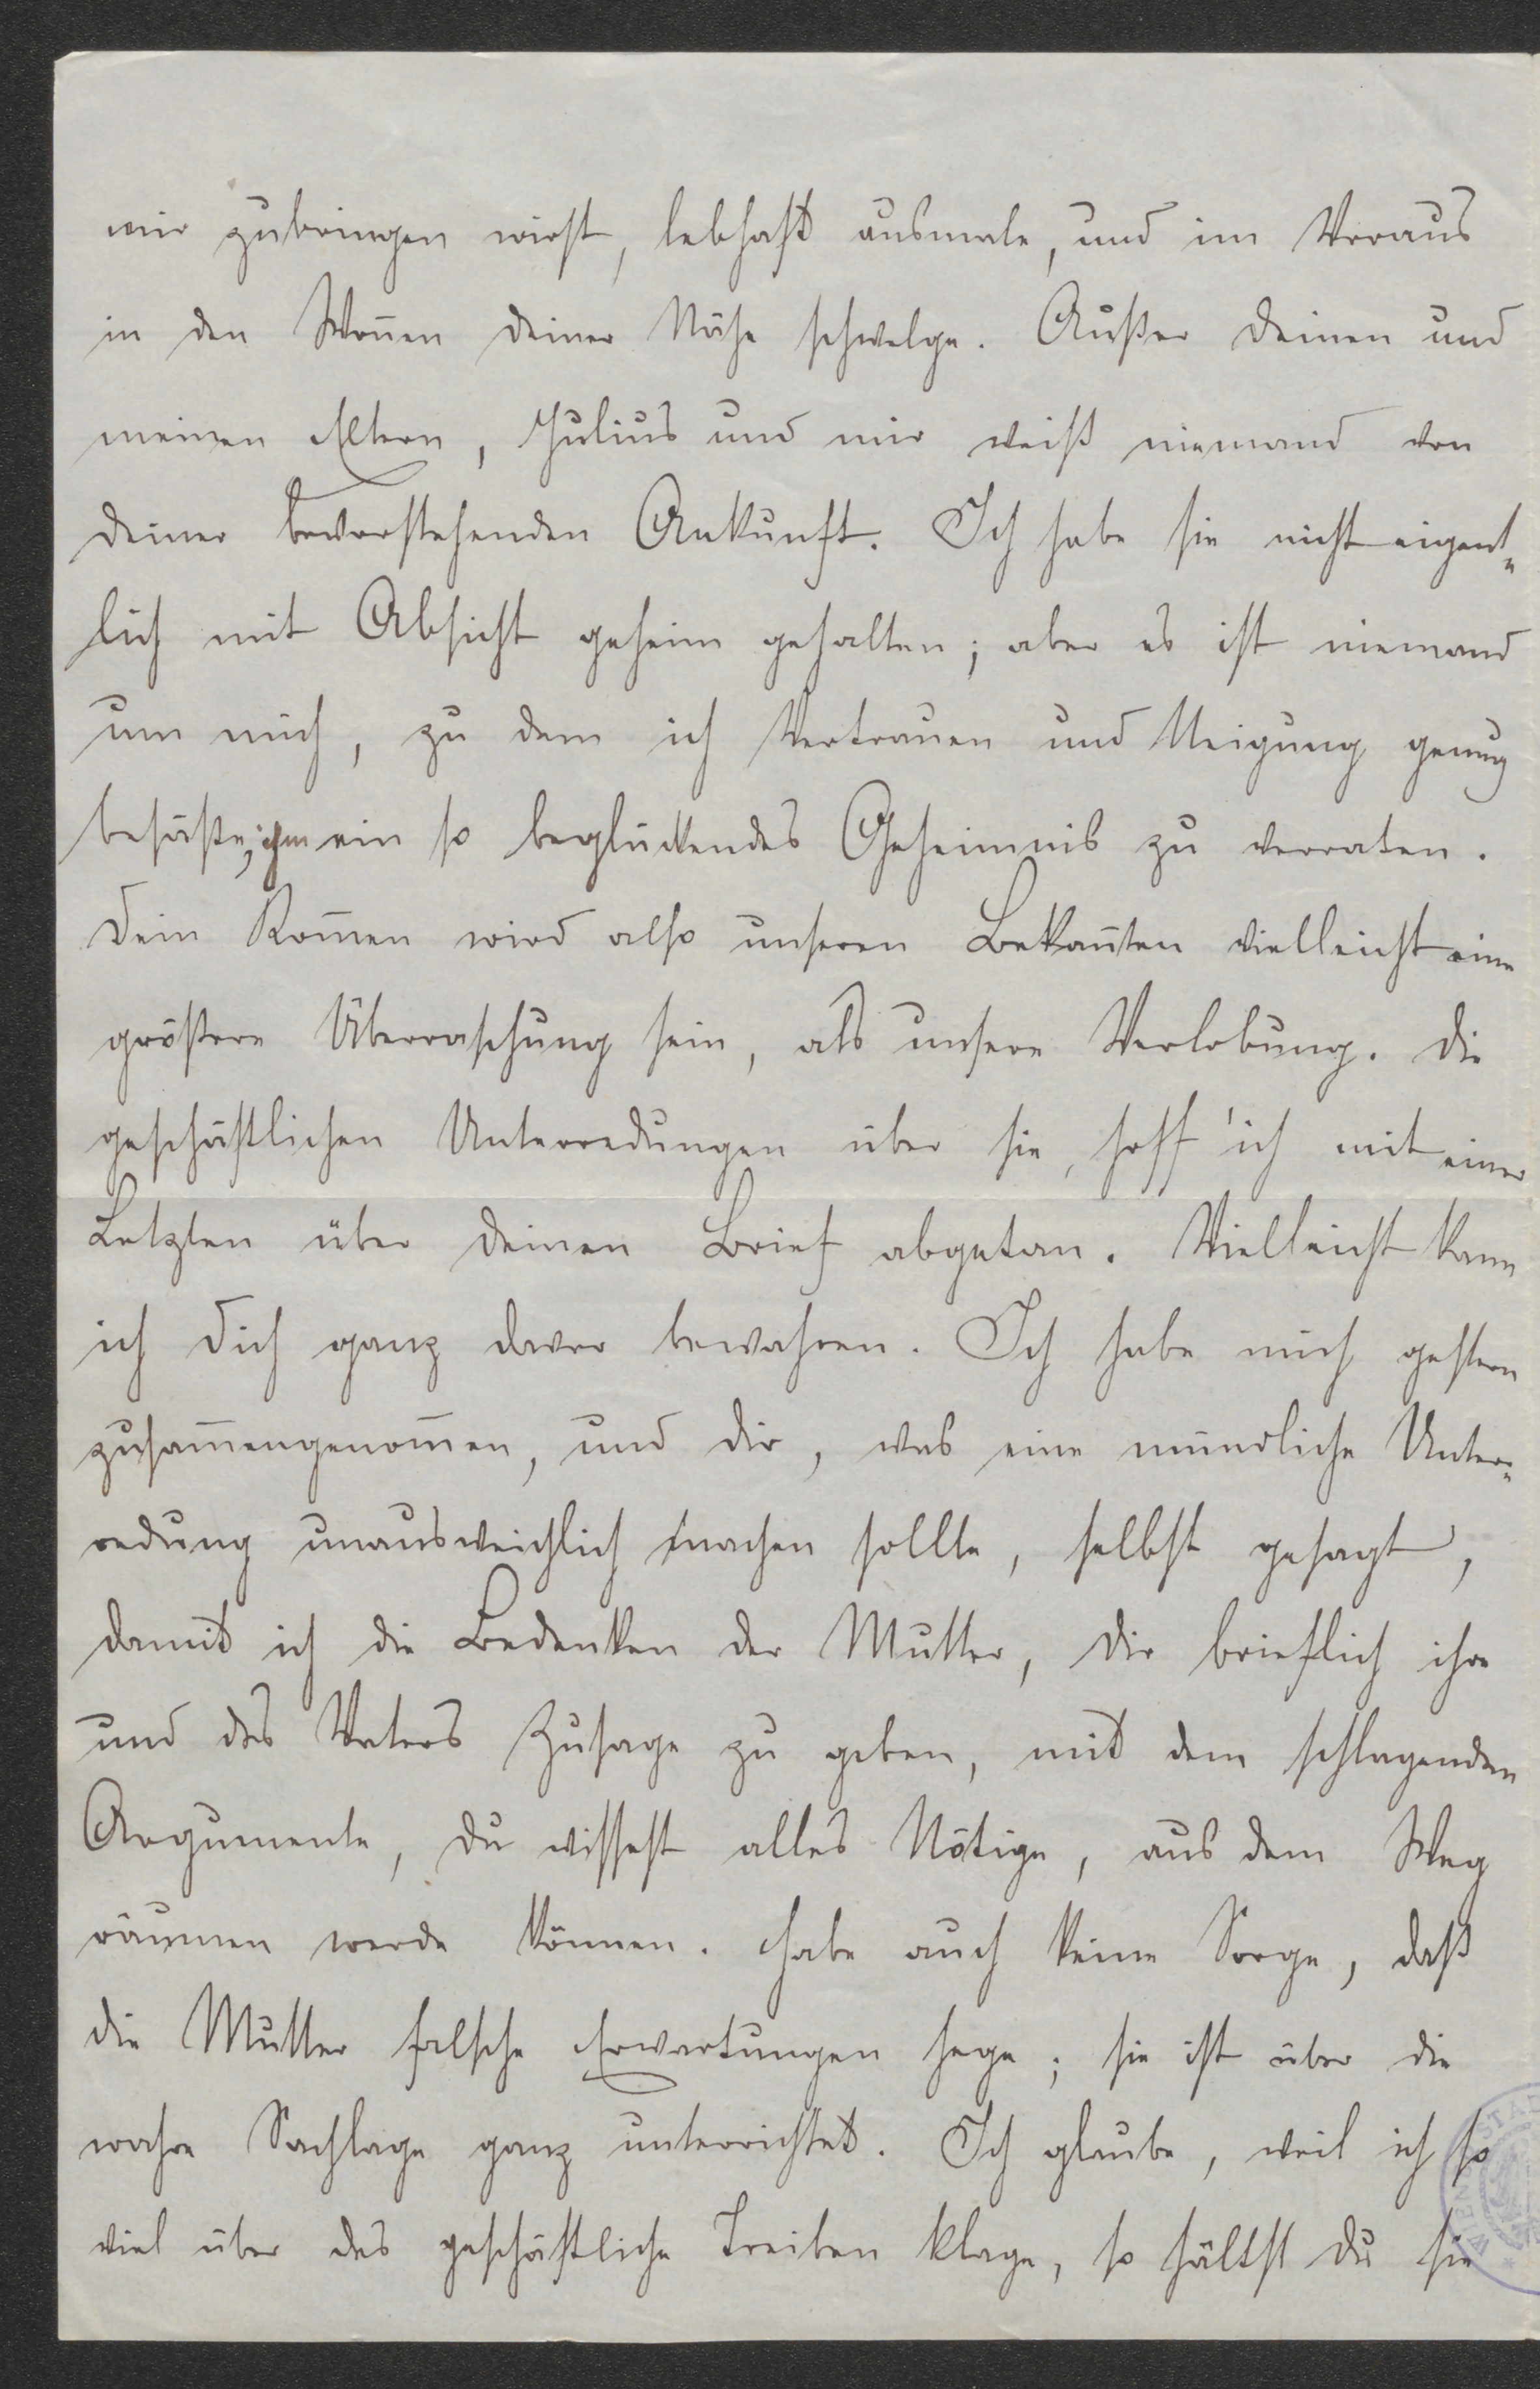 mir zubringen wirst, lebhaft ausmale, und im Voraus
in den Woñen deiner Nähe schwelge. Außer deinen und
meinen Eltern, Julius und mir weiß niemand von
deiner bevorstehenden Ankunft. Ich habe sie nicht eigent-
lich mit Absicht geheim gehalten; aber es ist niemand
um mich, zu dem ich Vertrauen und Neigung genug
besäße, ihm ein so beglückendes Geheimnis zu verraten.
Dein Kom̄en wird also unseren Bekañten vielleicht eine
größere Überraschung sein, als unsere Verlobung. Die
geschäftlichen Unterredungen über sie, hoff' ich mit einer
Letzten über deinen Brief abgetan. Vielleicht kann
ich dich ganz davor bewahren. Ich habe mich gestern
zusam̄engenom̄en, und dir, was eine mündliche Unter-
redung unausweichlich machen sollte, selbst gesagt,
damit ich die Bedenken der Mutter, dir brieflich ihre
und des Vaters Zusage zu geben, mit dem schlagenden
Argumente, du wissest alles Nötige, aus dem Weg
räumen werde können. Habe auch keine Sorge, daß
die Mutter falsche Erwartungen hege; sie ist über die
wahre Sachlage ganz unterrichtet. Ich glaube, weil ich so
viel über das geschäftliche Treiben klage, so hältst du sie